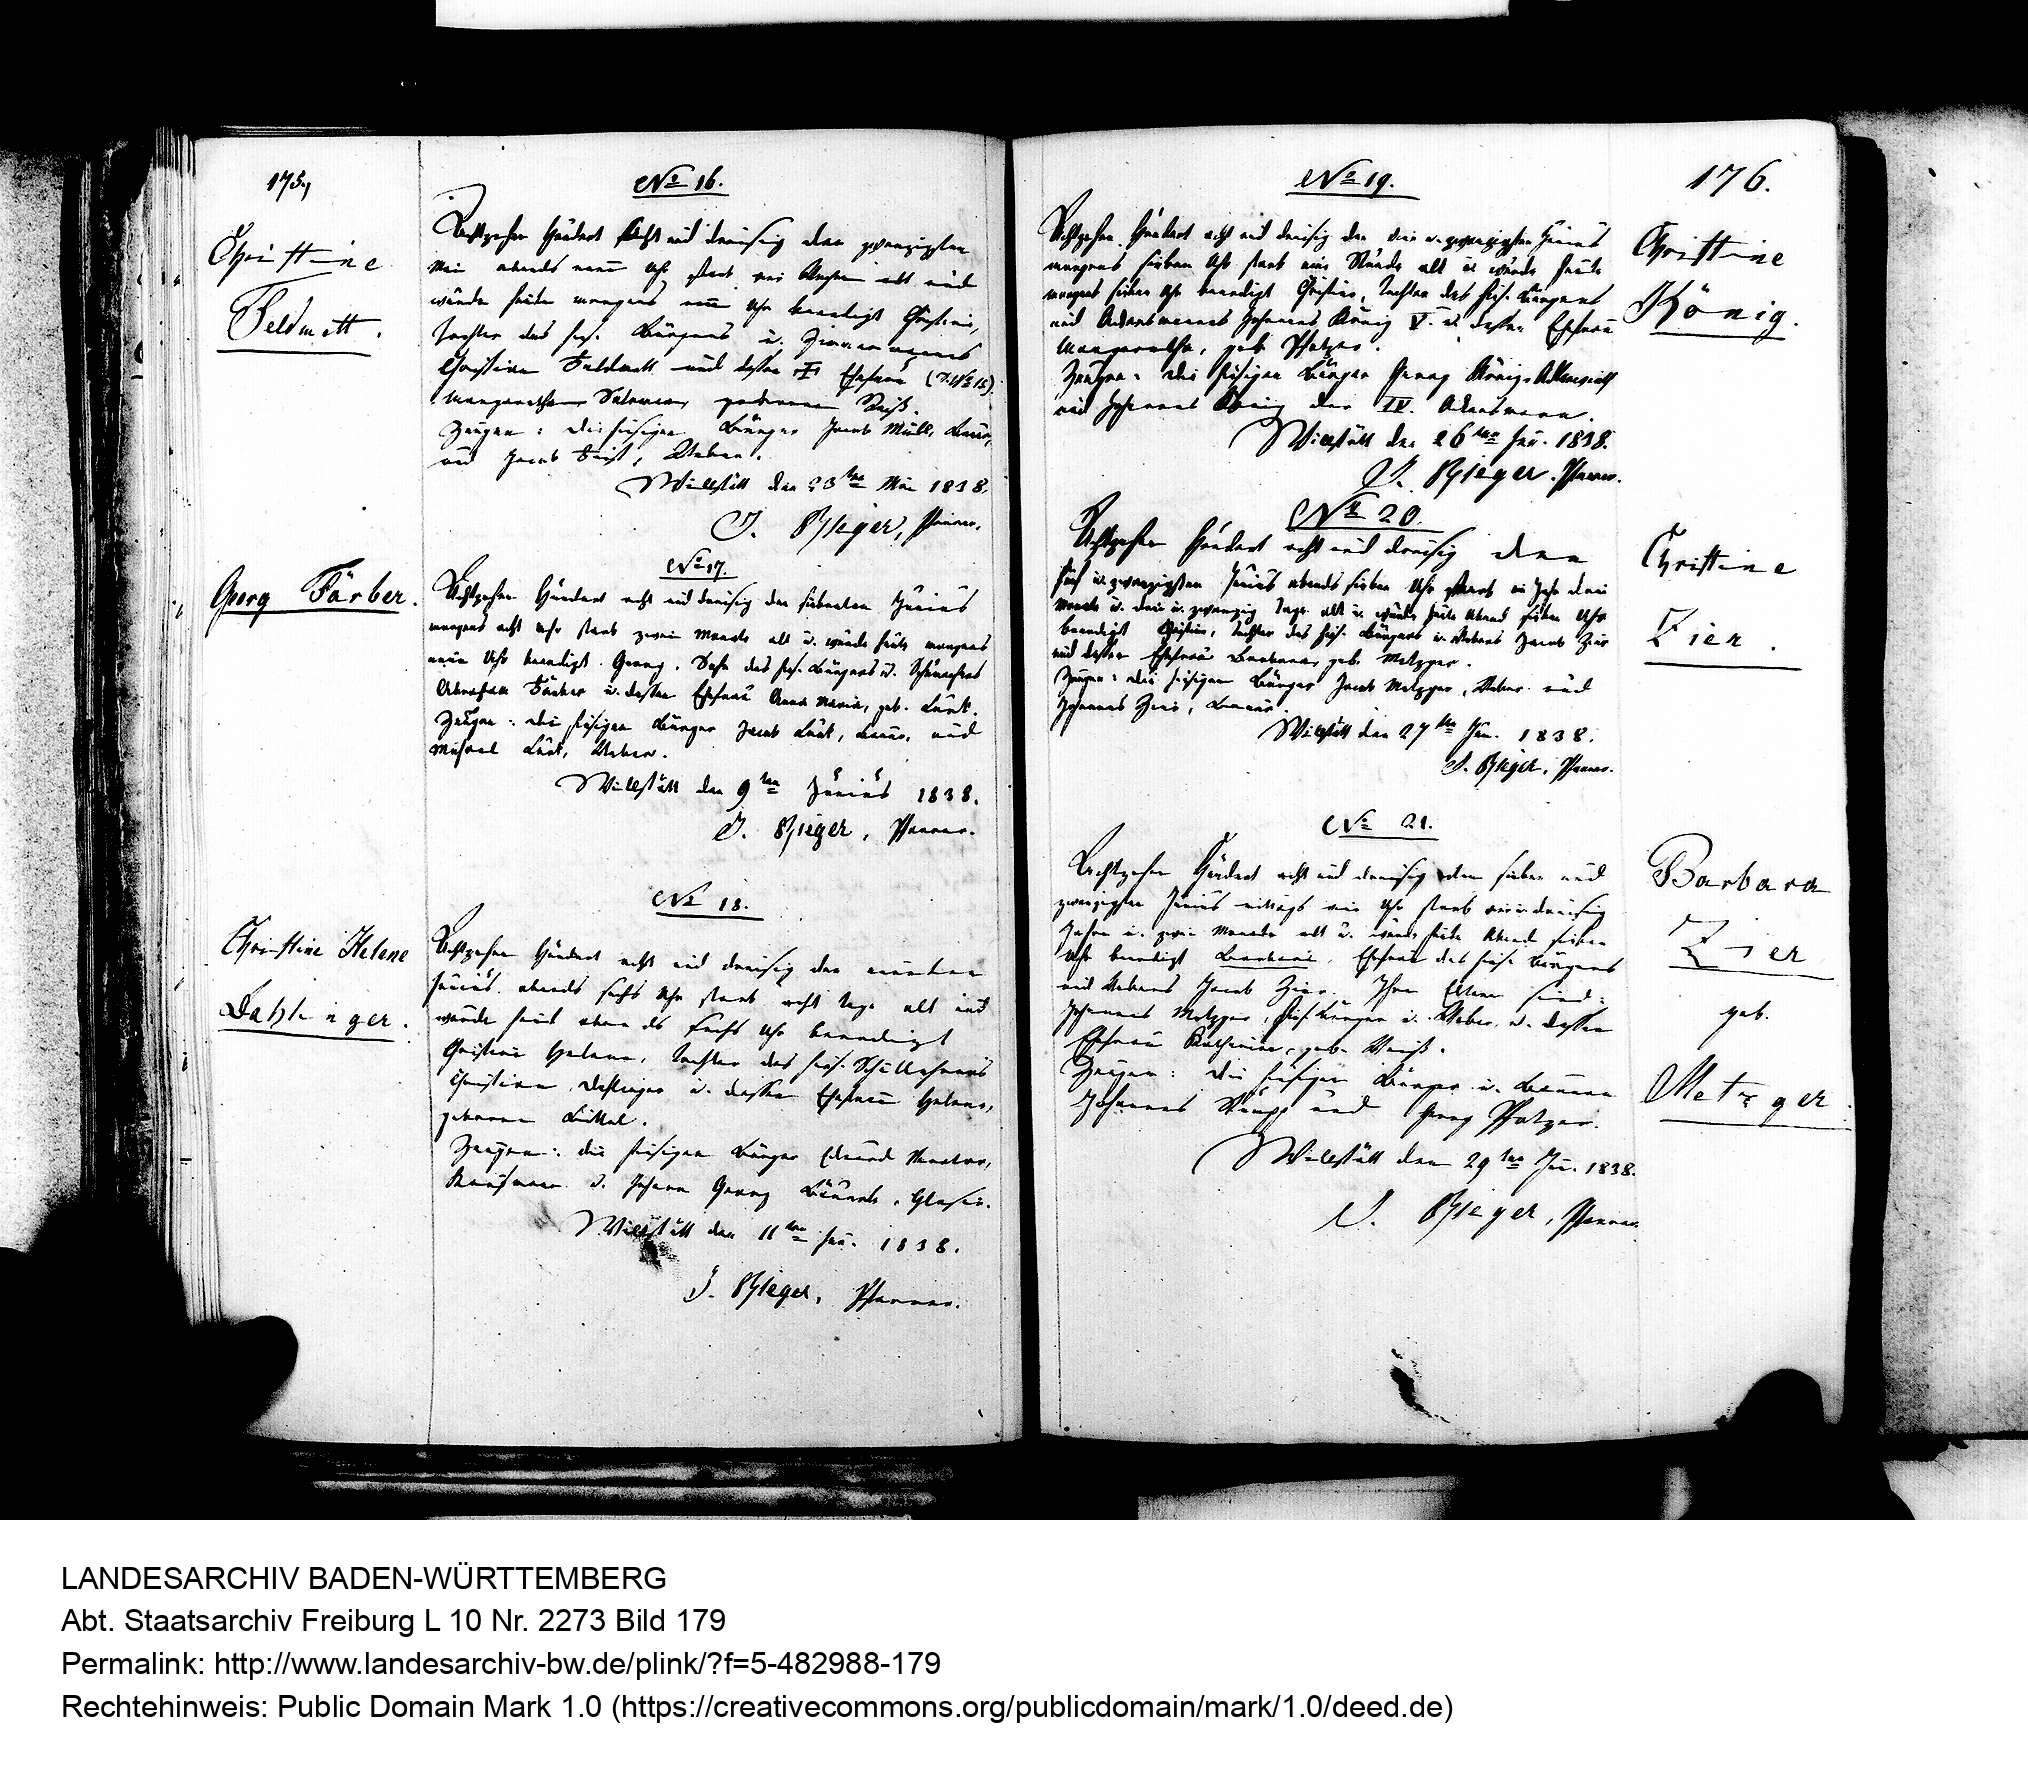 175,
Christine
Feldmatt.
No 16.
Achtzehn Hundert Acht und dreisig den zwanzigsten
Mai abends neun Uhr starb drei Wochen alt und
wurde heute morgens neun Uhr beerdigt Christine,
Tochter des hies. Bürgers u. Zimmermanns
Christian Feldmatt und dessen Ehefrau
Margaretha Salomea, geborenen
Zeugen: Die hiesigen Bürger Jacob Müll,
und Jacob Feist, Weber.
Willstätt den 23ten Mai 1838.
J. Rieger, Pfarrer.
Georg Färber.
No 17.
Achtzehn Hundert acht und dreisig den siebenten Junius
morgens acht Uhr starb zwei Monate alt u. wurde heute morgens
neun Uhr beerdigt Georg, Sohn des hies. Bürgers u. Schumachers
Abraham Färber u. dessen Ehefrau Anna Maria, geb.
Zeugen: Die hiesigen Bürger Jacob und
Michael Weber.
Willstätt den 9ten Junius 1838.
J. Rieger, Pfarrer.
Christine Helene
Dahlinger.
No 18.
Achtzehn Hundert acht und dreisig den neunten
Junius abends sechs Uhr starb acht Tage alt und
wurde heute abends sechs Uhr beerdigt
Christine Helene, Tochter des hies. Schullehrers
Christian Dahlinger u. dessen Ehefrau Helene,
geborenen
Zeugen: die hiesigen Bürger Eduard
Kaufmann u. Johann Georg Glaser.
Willstätt den 11ten Jun. 1838.
J. Rieger, Pfarrer.
176.
No 19.
Achtzehn Hundert acht und dreisig den drei u. zwanzigsten Junius
morgens sieben Uhr starb eine Stunde alt u. wurde heute
morgens sieben Uhr beerdigt Christine, Tochter des hies. Bürgers
und Ackersmannes Johannes König V. u. dessen Ehefrau
Margaretha, geb. Pfotzer.
Zeugen: die hiesigen Bürger Georg König,
und Johannes König der IV. Ackersmann.
Willstätt den 26ten Jun. 1838.
J. Rieger, Pfarrer.
Christine
König.
No 20.
Achtzehn Hundert acht und dreisig den
fünf u. zwanzigsten Junius abends sieben Uhr starb ein Jahr drei
Monate u. drei u. zwanzig Tage alt u. wurde heute Abend sieben Uhr
beerdigt Christine, Tochter des hies. Bürgers u. Webers Jacob Zier
und dessen Ehefrau Barbara, geb. Metzger.
Zeugen: die hiesigen Bürger Jacob Metzger, Weber und
Johannes Zier,
Willstätt den 27ten Jun. 1838.
J. Rieger, Pfarrer.
Christine
Zier.
No 21.
Achtzehn Hundert acht und dreisig den sieben und
zwanzigsten Junius mittags ein Uhr starb ein u. dreisig
Jahre u. zwei Monate alt u. wurde heute Abend sieben
Uhr beerdigt Barbara, Ehefrau des hies. Bürgers
und Webers Jacob Zier. Ihre Eltern sind:
Johannes Metzger, hies. Bürger u. Weber, u. dessen
Ehefrau Katharina, geb. Weiß.
Zeugen: die hiesigen Bürger u.
Johannes und Georg Pfotzer.
Willstätt den 29ten Jun. 1838.
J. Rieger, Pfarrer.
Barbara
Zier
geb.
Metzger.
LANDESARCHIV BADEN-WÜRTTEMBERG
Abt. Staatsarchiv Freiburg L 10 Nr. 2273 Bild 179
Permalink: http://www.landesarchiv-bw.de/plink/?f=5-482988-179
Rechtehinweis: Public Domain Mark 1.0 (https://creativecommons.org/publicdomain/mark/1.0/deed.de)